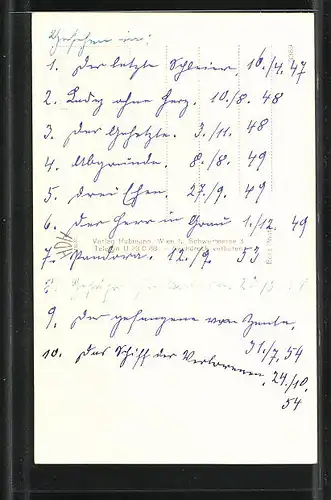 Gesehen in:
1. Der letzte Schleier. 16./4. 47
2. Lady ohne Herz. 10./8. 48
3. Der Gehetzte. 3./11. 48
4. Abgründe. 8./8. 49
5. Drei Ehen. 27./9. 49
6. Der Herr in Grau 1./12. 49
Verlag Hubmann, Wien
7. Pandora. 12./9. 53
8.
9. Der Gefangene von Zenda.
31./7. 54
10. Das Schiff der Verlorenen. 24./10.
54